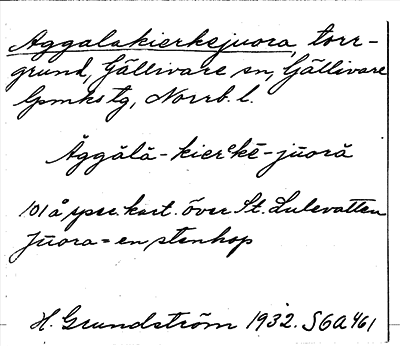 Aggalakierkejuora, torr-
grund, Gällivare sn, Gällivare
lpmks tg, Norrb. l.
Åggålå - kierᵉkē - jūorå
101 å spec. kart. över St. Lulevatten
Jūora = en stenhop
H. Grundström 1932. S6a461